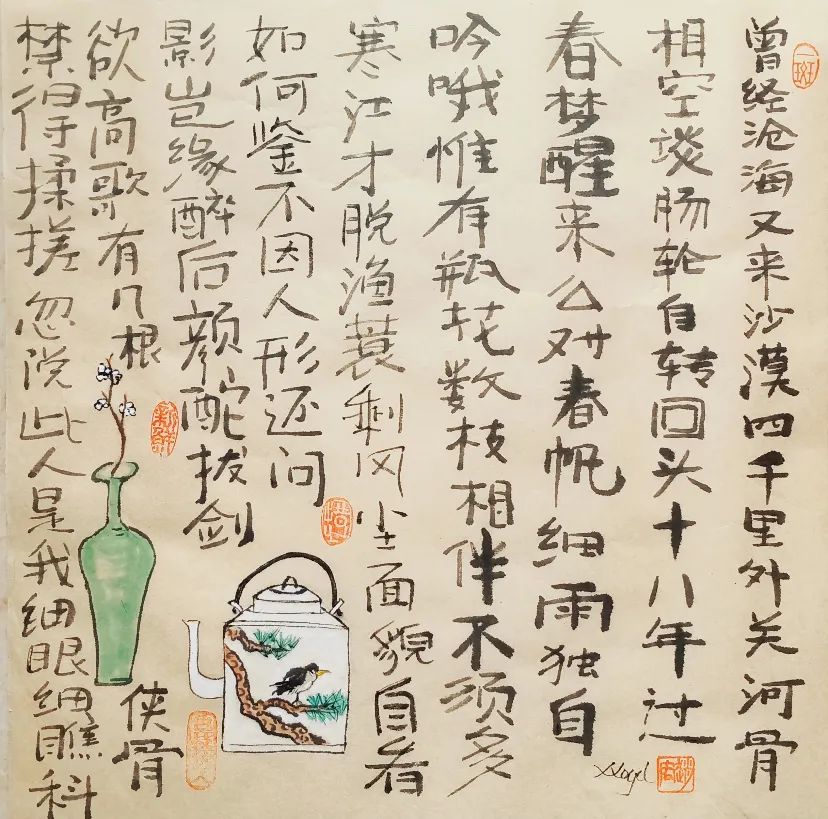 曾经沧海又来沙漠四千里外关河骨
相空谈肠轮自转回头十八年过
春梦醒来么对春帆细雨独自
吟哦惟有瓶花数枝相伴不须多
寒江才脱渔蓑剩风尘面貌自看
如何鉴不因人形还问
影岂缘醉后颜酡拔剑
欲高歌有几根侠骨
禁得揉搓忽说此人是我细眼细瞧科
一斑